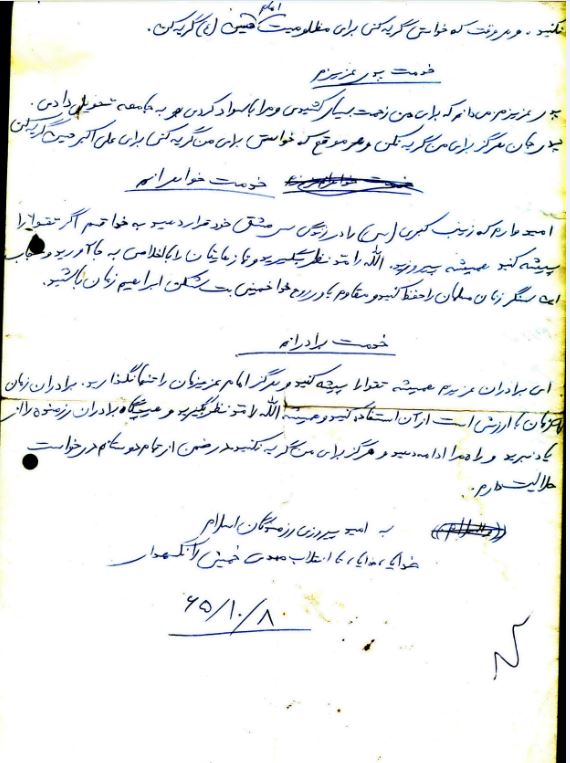 نکنید. و هر وقت که خواستی گریه کنی برای مظلومیت امام حسین (ع) گریه کن.
خدمت پدر عزیزم
پدر عزیزم می دانم که برای من زحمت بسیار کشیدی و مرا با سواد کردی و به جامعه تحویل دادی.
پدر جان هرگز برای من گریه نکن و هر موقع که خواستی برای من گریه کنی برای علی اکبر حسین گریه کن
خدمت خواهرانم
امیدوارم که زینب کبری (س) را در زندگی سرمشق خود قرار دهید به خدا قسم اگر تقوا را
پیشه کنید همیشه پیروزید. الله را مد نظر بگیرید و نمازهایتان را با اخلاص به جا آورید و حجاب
این سنگر زنان مسلمان را حفظ کنید و مقاوم یاور روح خدا خمینی بت شکن ابراهیم زمان باشید.
خدمت برادرانم
ای برادران عزیزم همیشه تقوا را پیشه کنید و هرگز امام عزیزمان را تنها نگذارید. برادران زمان
با ارزش است از آن استفاده کنید و همیشه الله را مد نظر بگیرید و هیچگاه برادران رزمنده را از
یاد نبرید و راه مرا ادامه دهید و هرگز برای من گریه نکنید در ضمن از تمام دوستانم درخواست
حلالیت دارم.
به امید پیروزی رزمندگان اسلام
خدایا، خدایا، تا انقلاب مهدی خمینی را نگهدار
۶۵/۱۰/۸